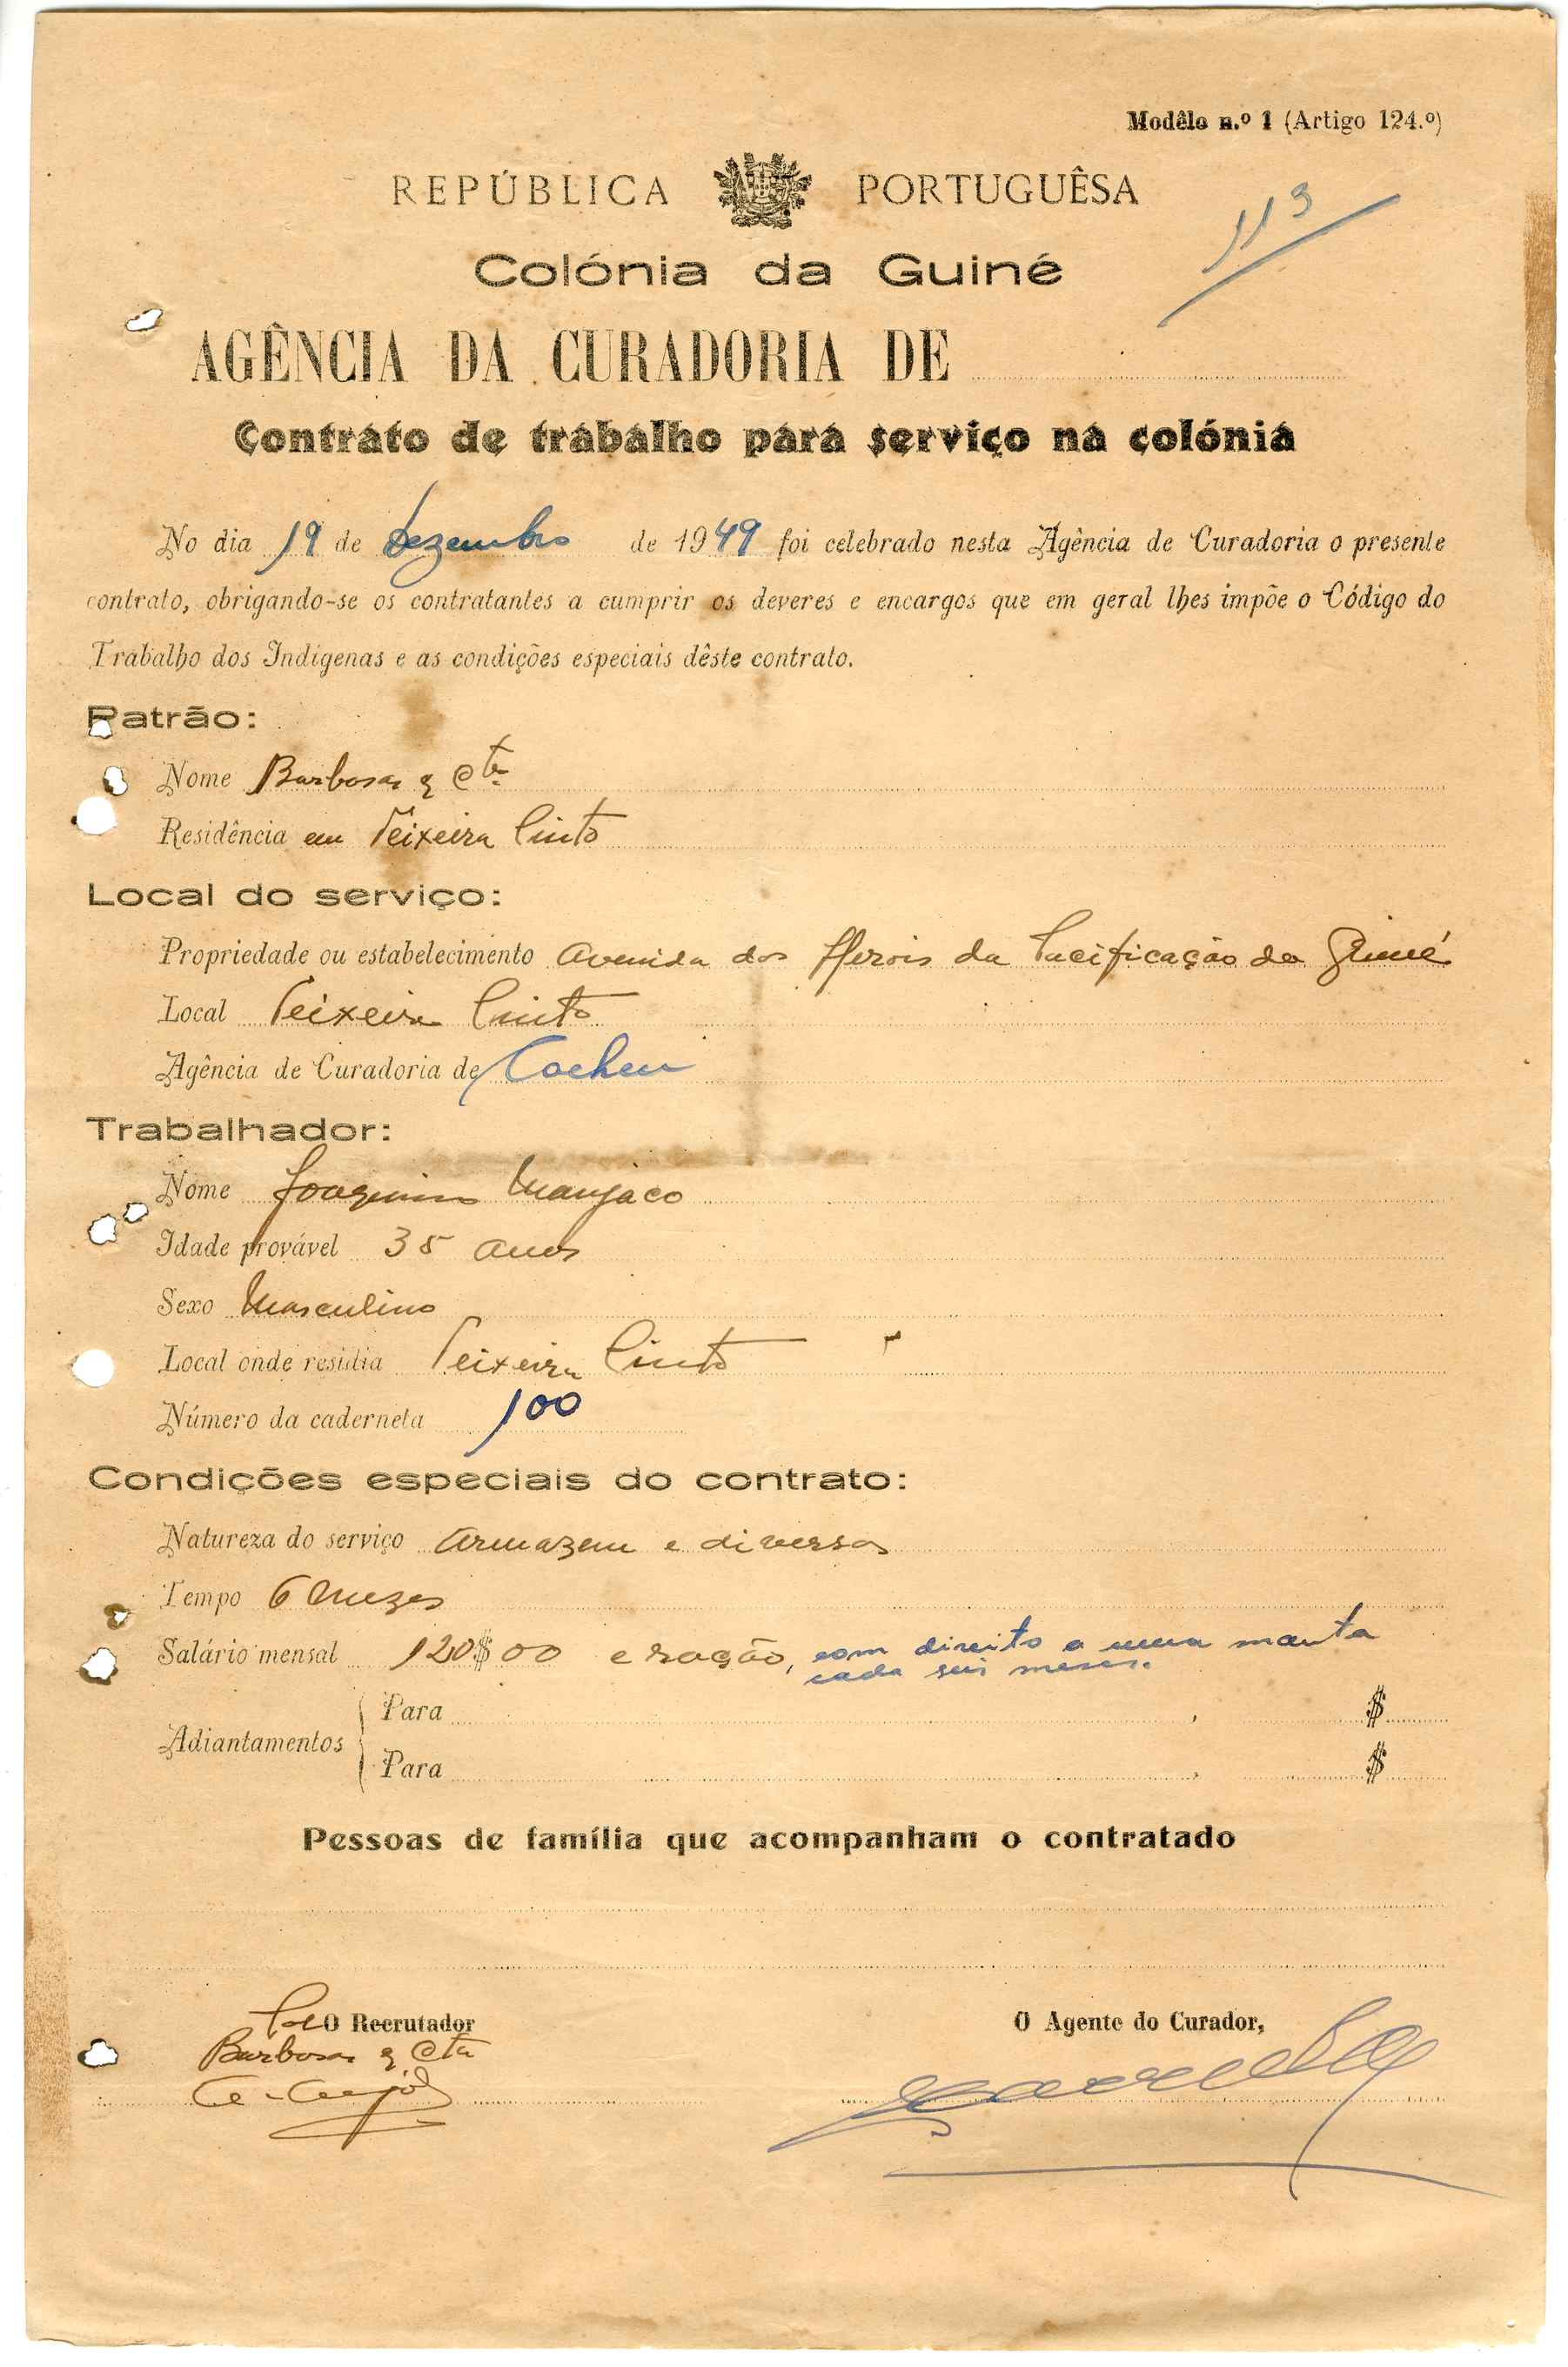 Modêlo n.º 1 (Artigo 124.º)
REPÚBLICA PORTUGUÊSA
113
Colónia da Guiné
AGÊNCIA DA CURADORIA DE
Contrato de trabalho para serviço na colónia
No dia 19 de Dezembro de 1949 foi celebrado nesta Agência de Curadoria o presente
contrato, obrigando-se os contratantes a cumprir os deveres e encargos que em geral lhes impõe o Código do
Trabalho dos Indígenas e as condições especiais dêste contrato.
Patrão:
Nome Barbosa & Cta
Residência em Teixeira Pinto
Local do serviço:
Propriedade ou estabelecimento Avenida dos Herois da Pacificação da Guiné
Local Teixeira Pinto
Agência de Curadoria de Cacheu
Trabalhador:
Nome Joaquim Manjaco
Idade provável 35 anos
Sexo Masculino
Local onde residia Teixeira Pinto
Número da caderneta 100
Condições especiais do contrato:
Natureza do serviço Armazem e diversos
Tempo 6 Mezes
Salário mensal 120$00 e ração, com direito a uma manta
cada seis meses.
Adiantamentos
Para $
Para $
Pessoas de família que acompanham o contratado
O Recrutador
Barbosa & Cta
O Agente do Curador,